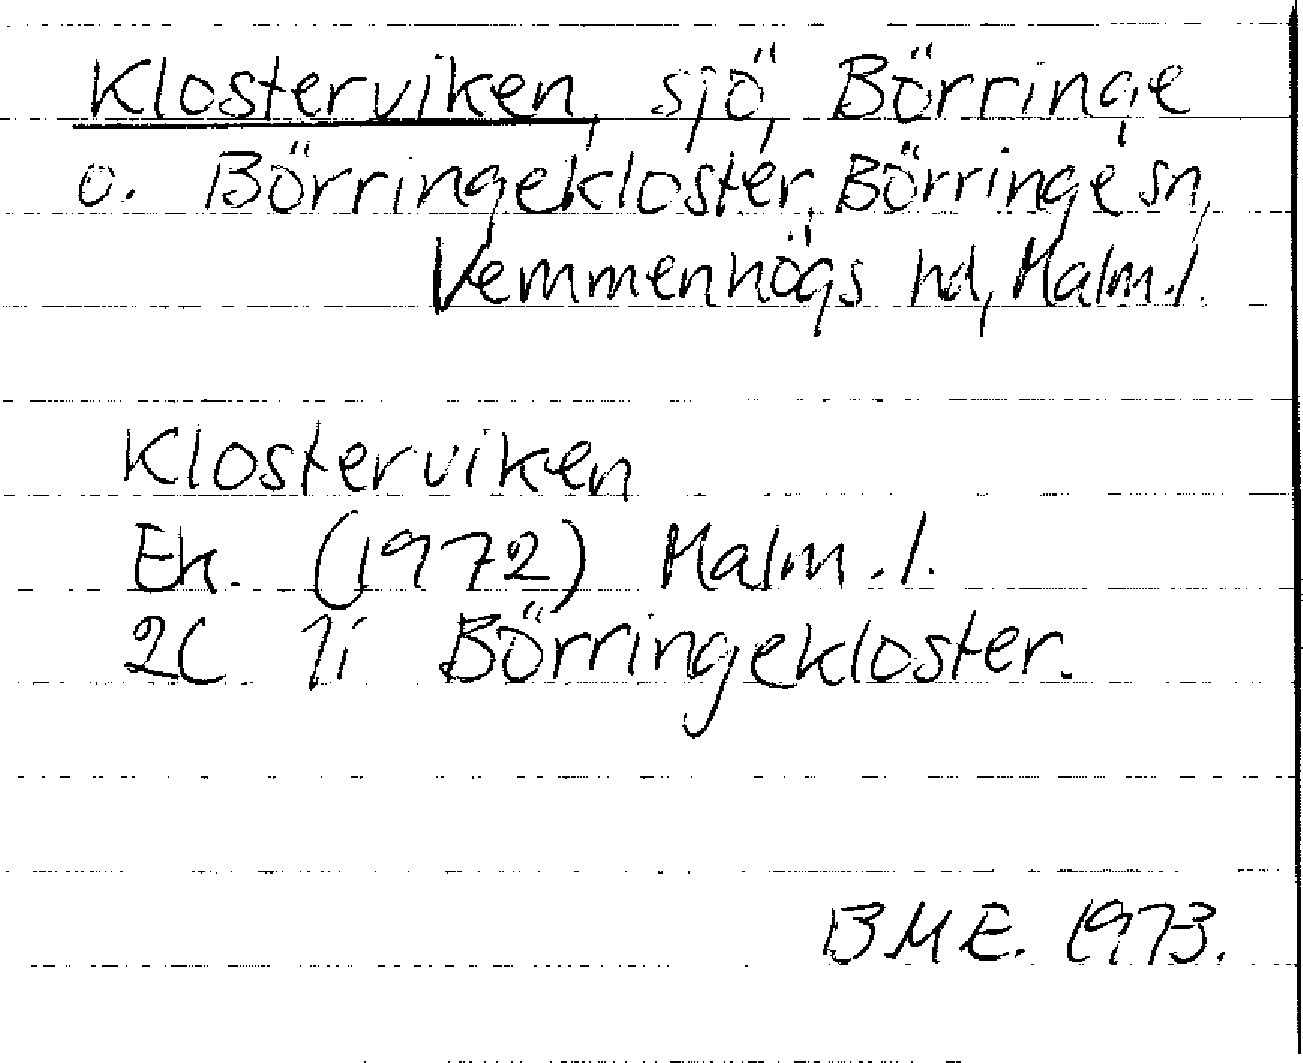 Klosterviken, sjö, Börringe
o. Börringekloster, Börringe sn,
Vemmenhögs hd, Malm.l.
Klosterviken
Ek. (1972) Malm.l.
2C 1i Börringekloster.
BME. 1973.